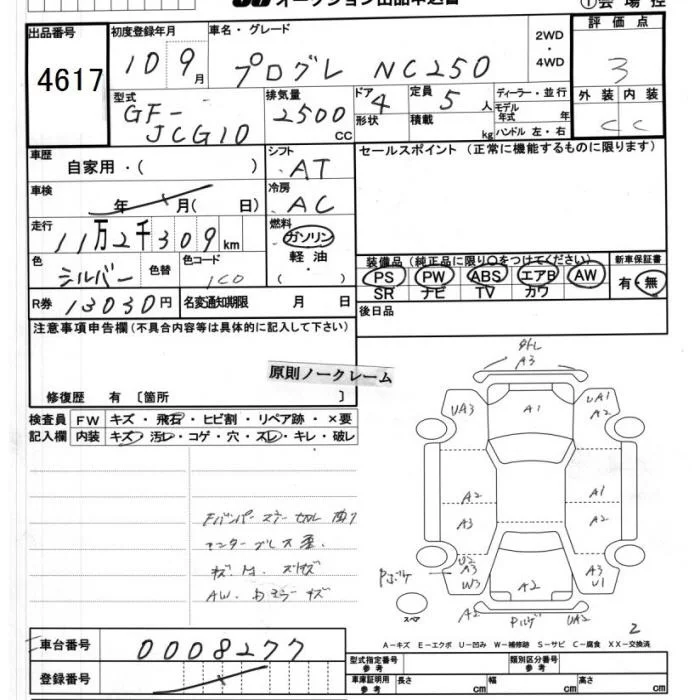 オークション出品申込書
①会場控
出品番号
4617
初度登録年月
10 9月
車名・グレード
プログレ NC250
2WD
・
4WD
評価点
3
外装 内装
C C
型式
GF-
JCG10
排気量
2500
cc
ドア
4
形状
定員
5人
積載
kg
ディーラー・並行
モデル
年式 年
ハンドル 左・右
車歴
自家用・( )
シフト
AT
セールスポイント (正常に機能するものに限ります)
車検
年 月( 日)
冷房
AC
走行
11万2千309km
燃料
ガソリン
軽油
・
( )
色
シルバー
色替
色コード
1C0
装備品(純正品に限り○をつけてください)
新車保証書
PS PW ABS エアB AW
有・無
SR ナビ TV カワ
R券 13030円
名変通知期限 月 日
後日品
注意事項申告欄(不具合内容等は具体的に記入して下さい)
原則ノークレーム
修復歴 有 〔箇所 〕
検査員
記入欄
FW キズ・飛石・ヒビ割・リペア跡・×要
内装 キズ・汚レ・コゲ・穴・スレ・キレ・破レ
A3
UA3
A1
UA1
A2
A2
A3
A1
A2
U2
A3
W3
A3
U1
A2
A2
UA2
スペア
2
A-キズ E-エクボ U-凹み W-補修跡 S-サビ C-腐食 XX-交換済
車台番号
0008277
登録番号
型式指定番号
参考
類別区分番号
参考
車庫証明用
参考
長さ cm
幅 cm
高さ cm